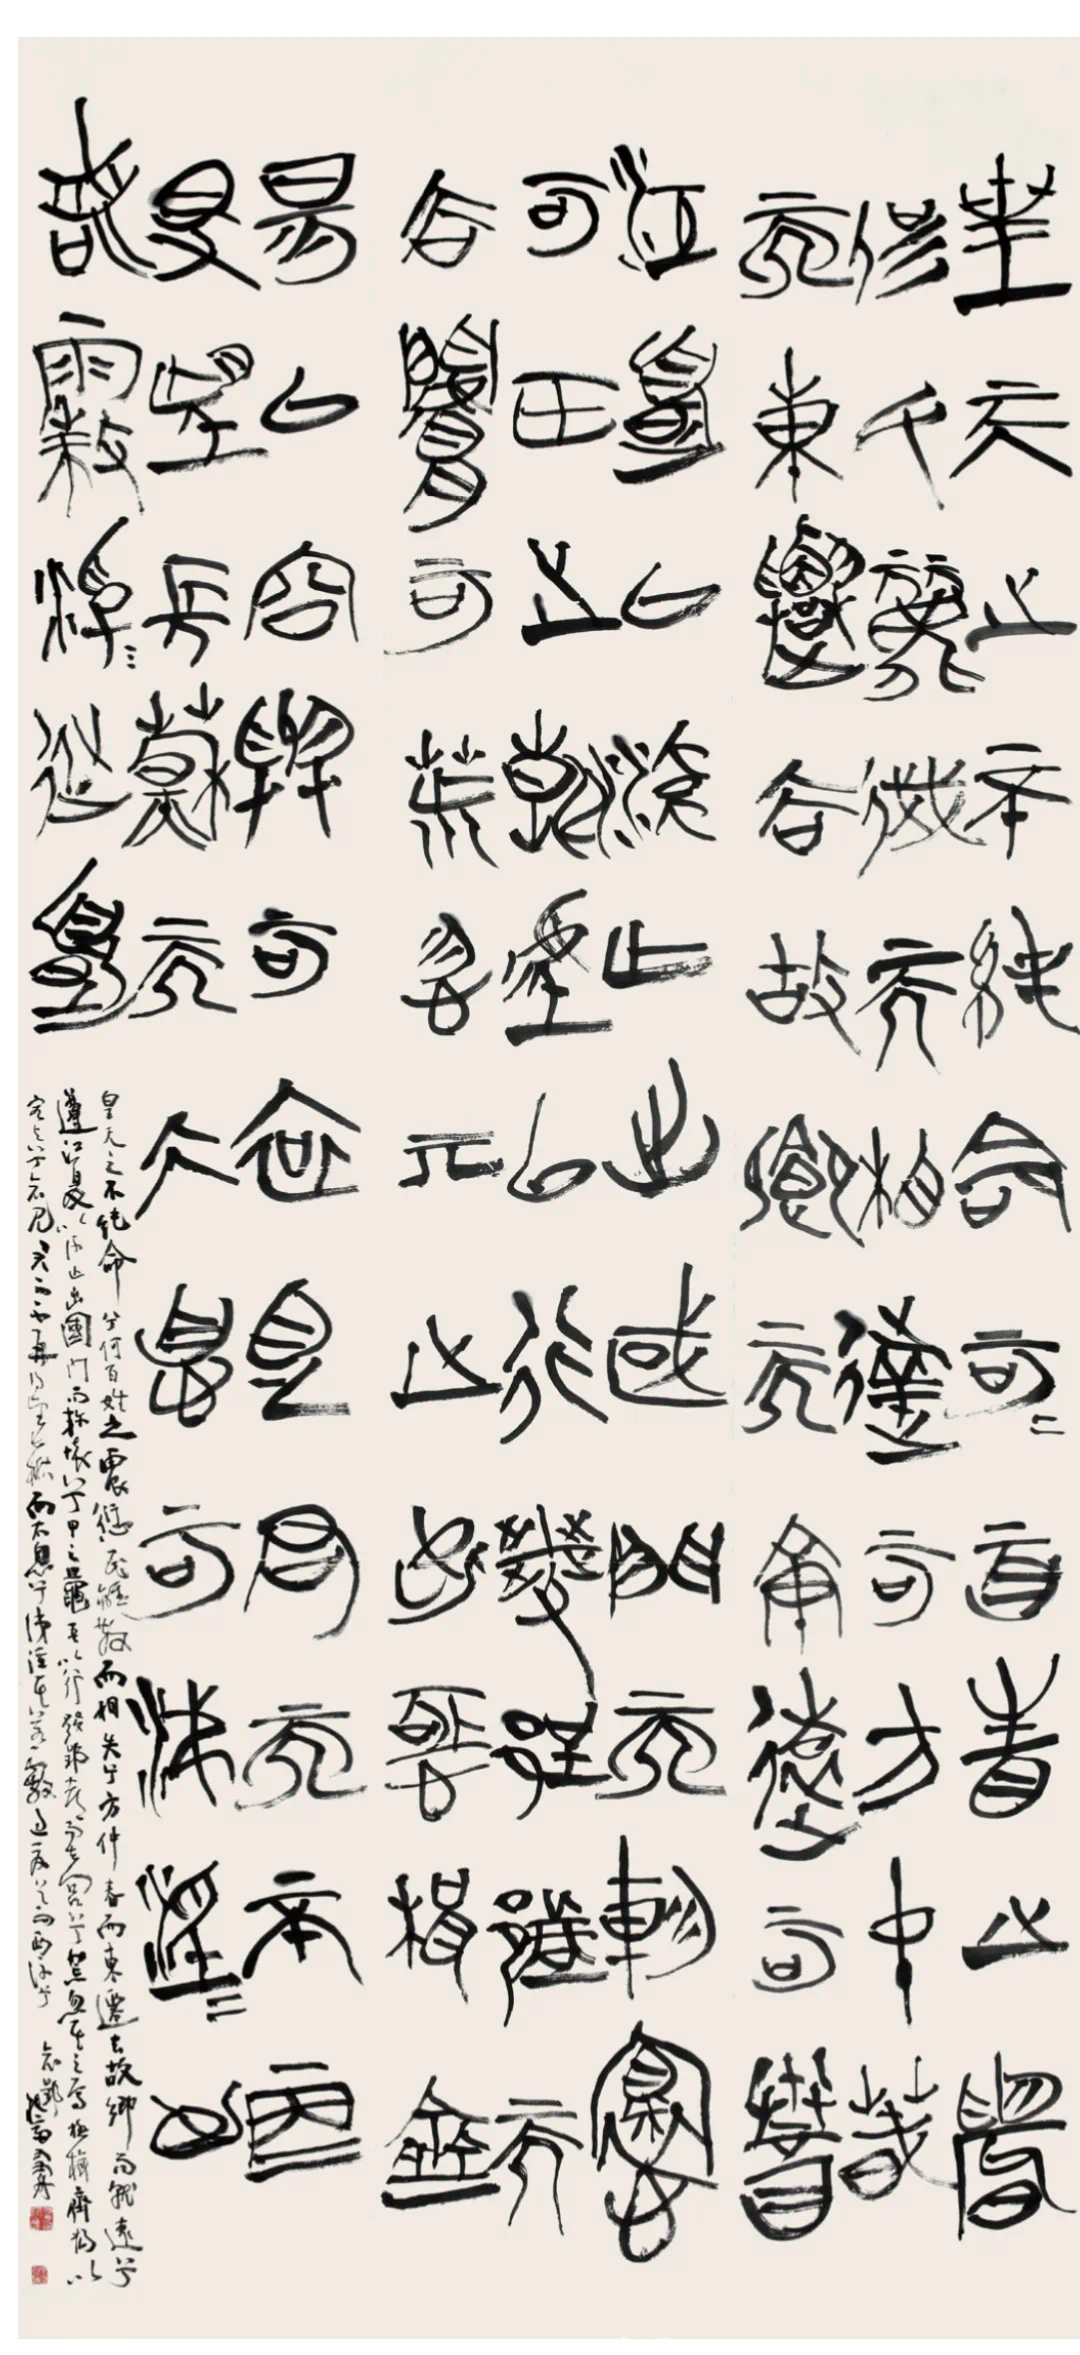 皇天之不純命兮何百姓之震
愆民離散而相失兮方仲春
而東遷去故鄉而就遠兮遵
江夏以流亡出國門而軫懷
兮甲之鼂吾以行發郢都而
去閭兮荒忽其之焉極楫齊
揚以容與兮哀見君而不再
得望長楸而太息兮涕淫淫其
若霰
皇天之不純命兮何百姓之震愆民離散而相失兮方仲春而東遷去故鄉而就遠兮
遵江夏以流亡出國門而軫懷兮甲之鼂吾以行發郢都而去閭兮荒忽其之焉極楫齊揚以
容與兮哀見君而不再得望長楸而太息兮涕淫淫其若霰過夏首而西浮兮 哀郢